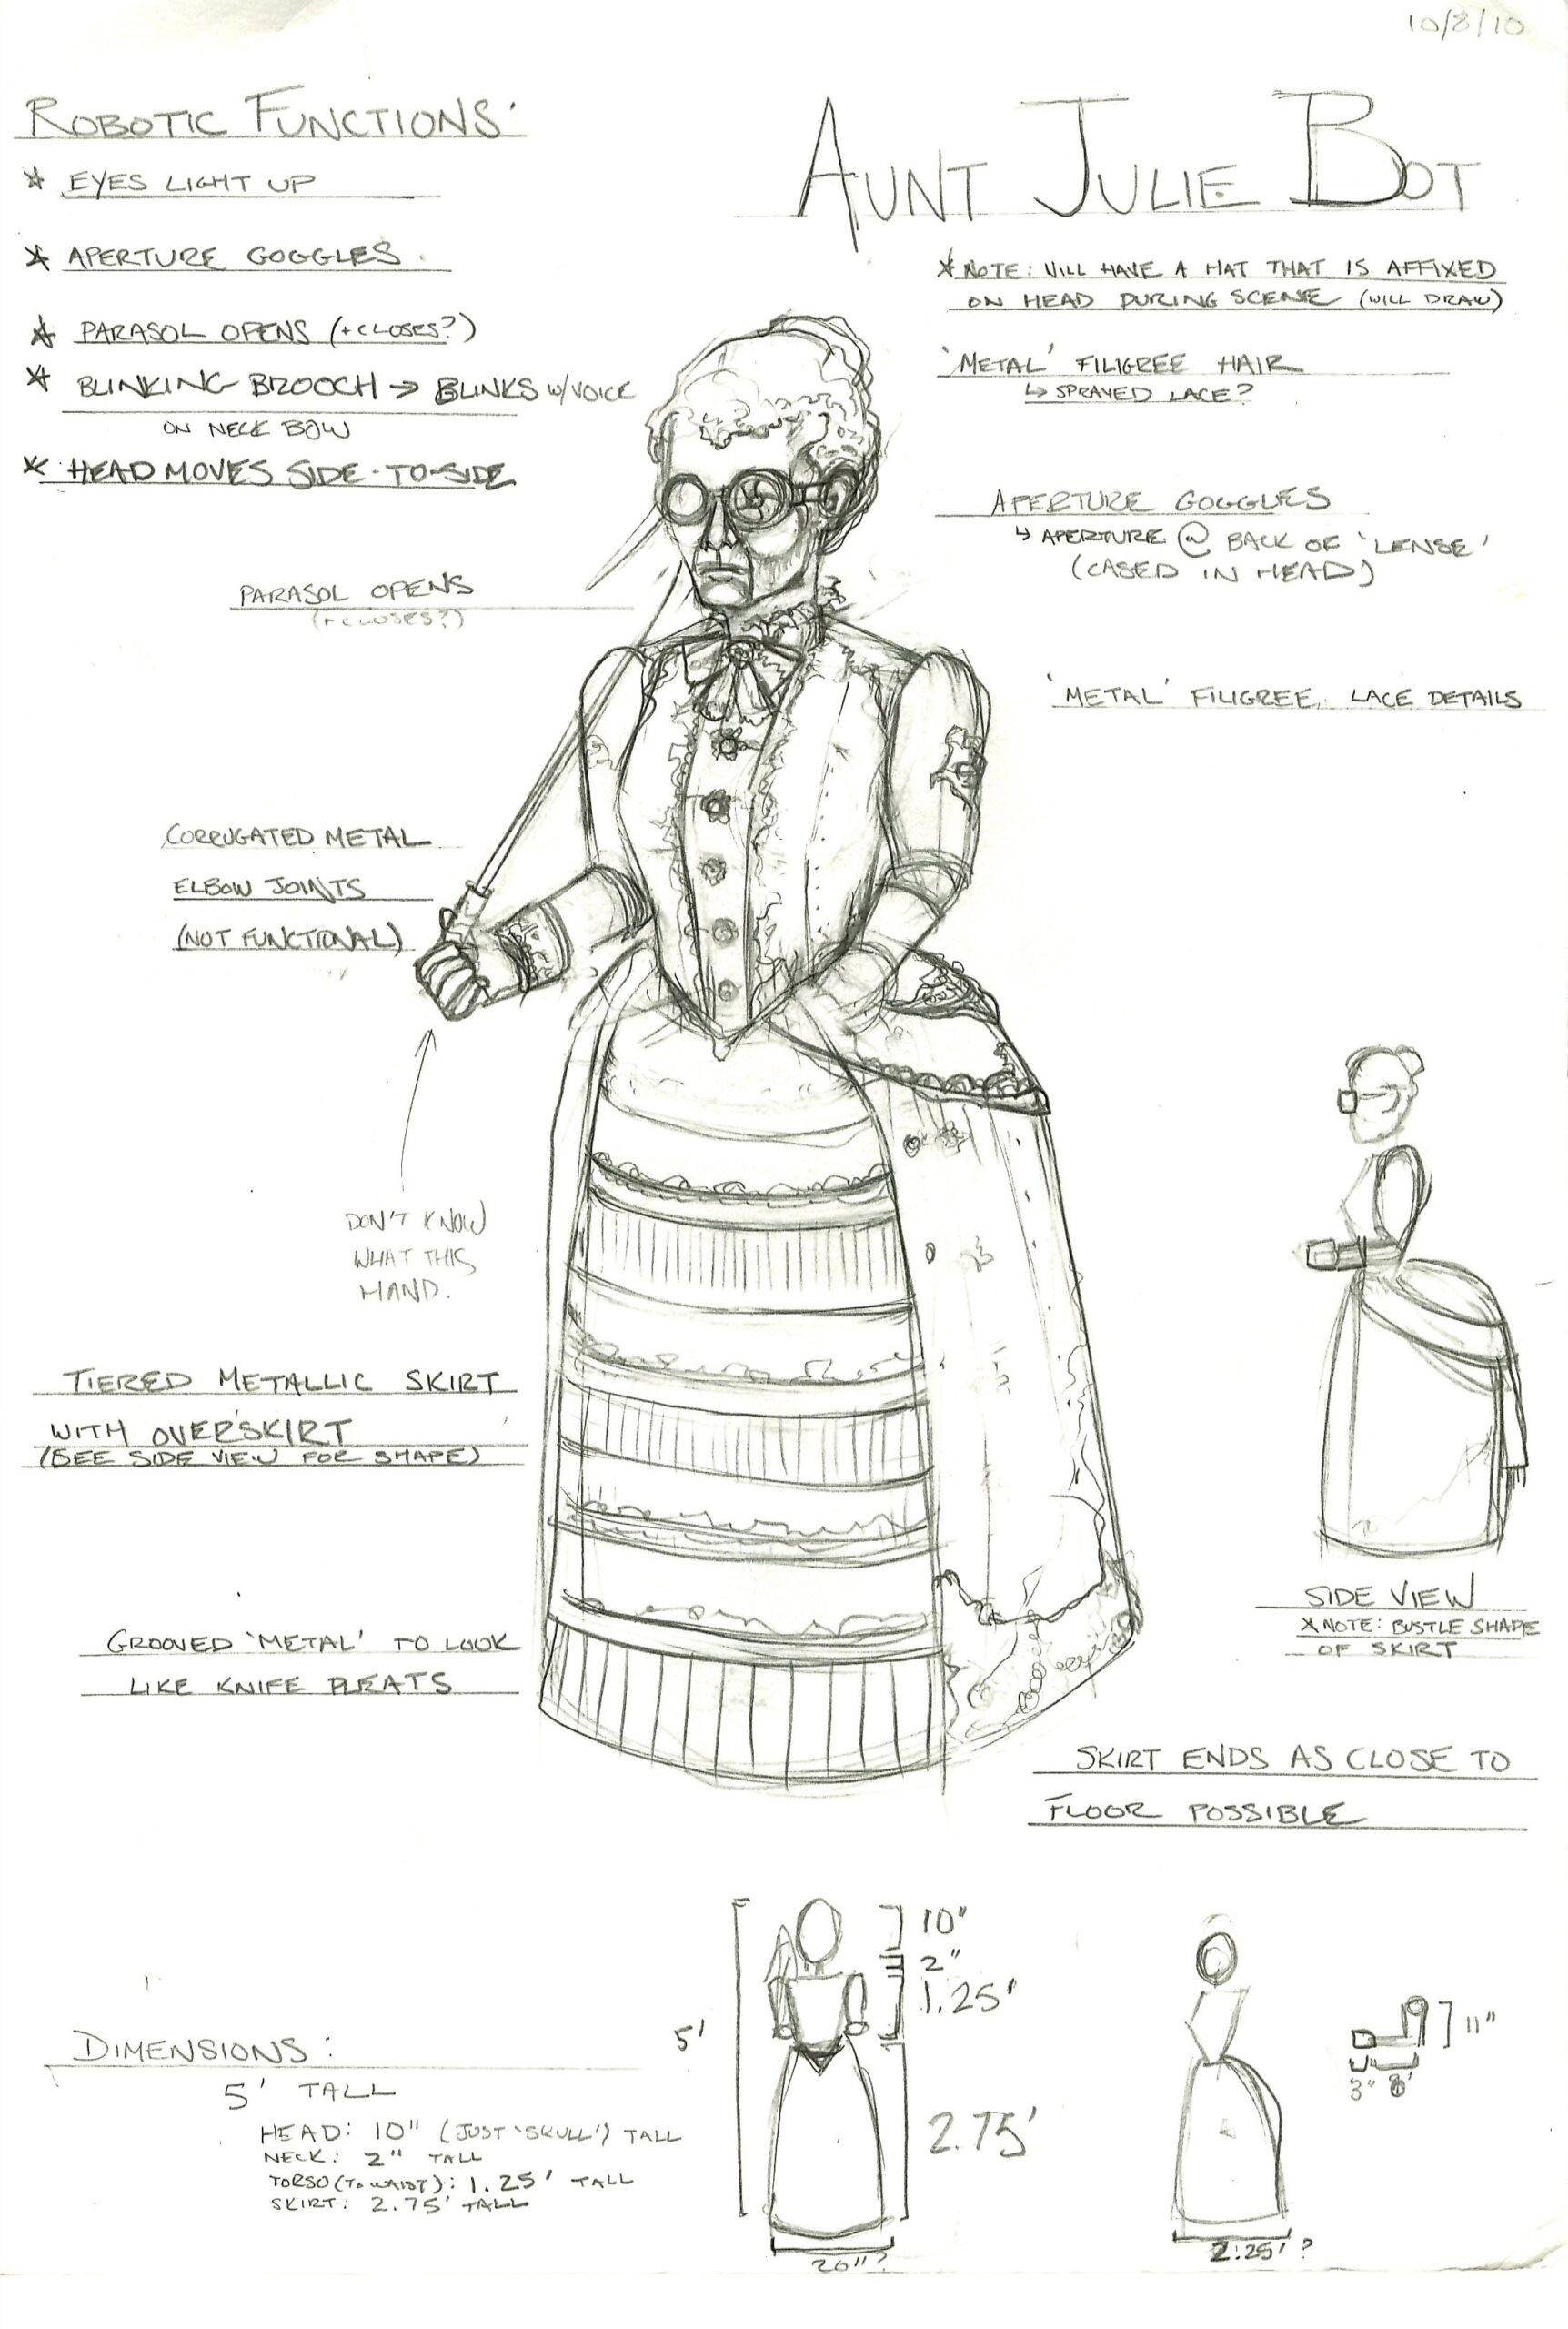 10/8/10
ROBOTIC FUNCTIONS:
* EYES LIGHT UP
* APERTURE GOGGLES
* PARASOL OPENS (+CLOSES?)
* BLINKING BROOCH → BLINKS W/VOICE
ON NECK BOW
* HEAD MOVES SIDE-TO-SIDE
AUNT JULIE BOT
* NOTE: WILL HAVE A HAT THAT IS AFFIXED
ON HEAD DURING SCENE (WILL DRAW)
'METAL' FILIGREE HAIR
↳ SPRAYED LACE?
APERTURE GOGGLES
↳ APERTURE @ BACK OF 'LENSE'
(CASED IN HEAD)
PARASOL OPENS
(+CLOSES?)
'METAL' FILIGREE, LACE DETAILS
CORRUGATED METAL
ELBOW JOINTS
(NOT FUNCTIONAL)
DON'T KNOW
WHAT THIS
HAND.
TIERED METALLIC SKIRT
WITH OVERSKIRT
(SEE SIDE VIEW FOR SHAPE)
SIDE VIEW
* NOTE: BUSTLE SHAPE
OF SKIRT
GROOVED 'METAL' TO LOOK
LIKE KNIFE PLEATS
SKIRT ENDS AS CLOSE TO
FLOOR POSSIBLE
DIMENSIONS:
5' TALL
HEAD: 10" (JUST 'SKULL') TALL
NECK: 2" TALL
TORSO (TO WAIST): 1.25' TALL
SKIRT: 2.75' TALL
5'
10"
2"
1.25'
2.75'
20"?
2.25'?
11"
3" 8"